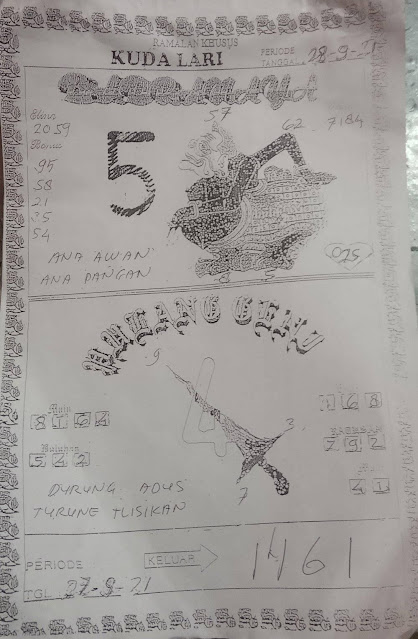 RAMALAN KHUSUS
KUDA LARI
PERIODE
TANGGAL 28-9-21
57
2059
62 7184
5
95
58
21
35
54
025
ANA AWAN
ANA PANGAN
8 5
9
4
8164
168
3
792
542
41
7
DURUNG ADUS
TURUNE TLISIKAN
PERIODE
KELUAR
1461
TGL. 27-9-21